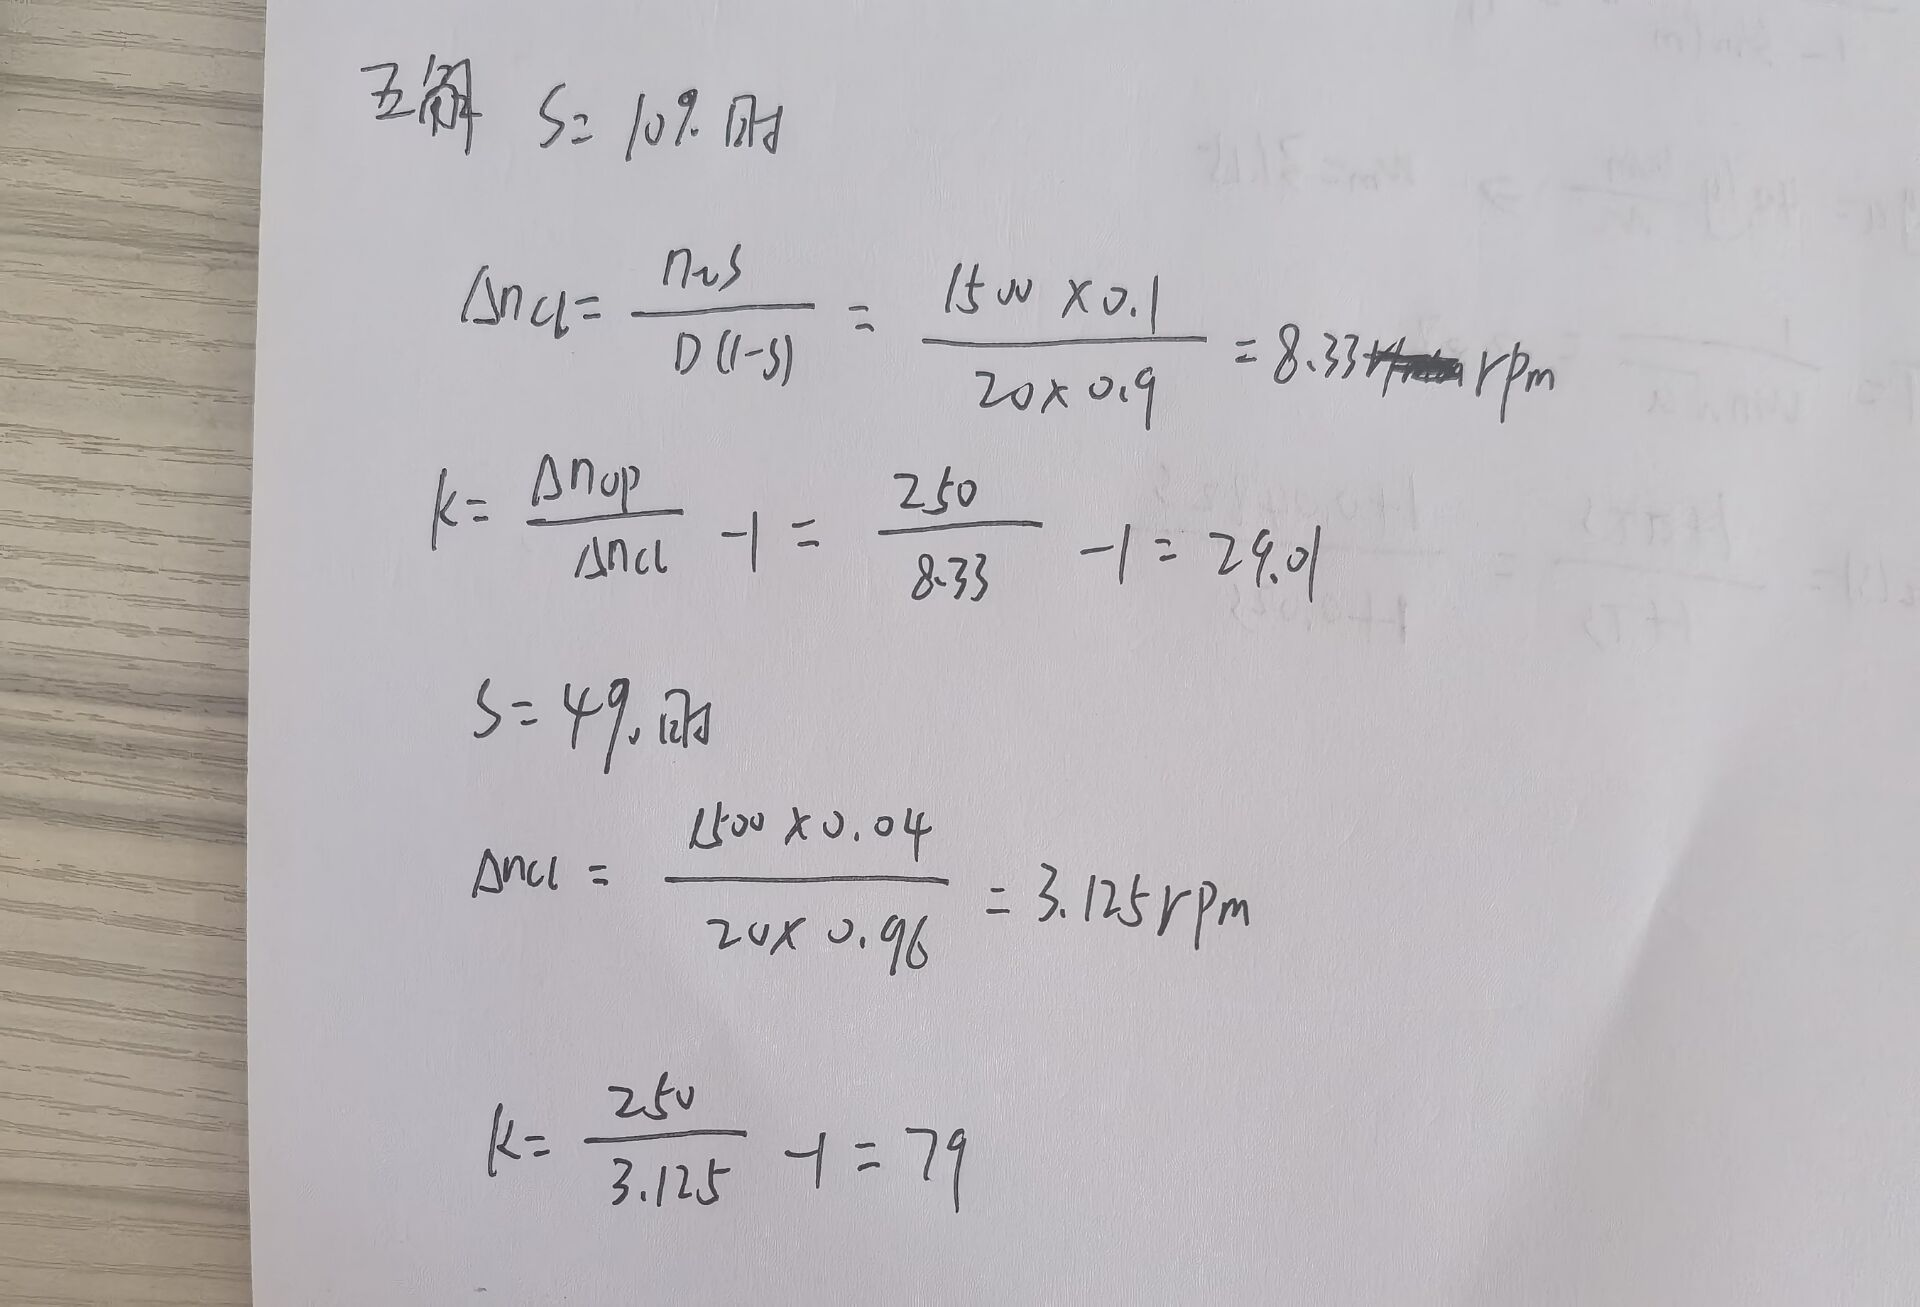 五解 S=10%时
Δncl = nNS / D(1-S) = 1500×0.1 / 20×0.9 = 8.33 rpm
K = Δnop / Δncl -1 = 250 / 8.33 -1 = 29.01
S=4%时
Δncl = 1500×0.04 / 20×0.96 = 3.125rpm
K = 250 / 3.125 -1 = 79